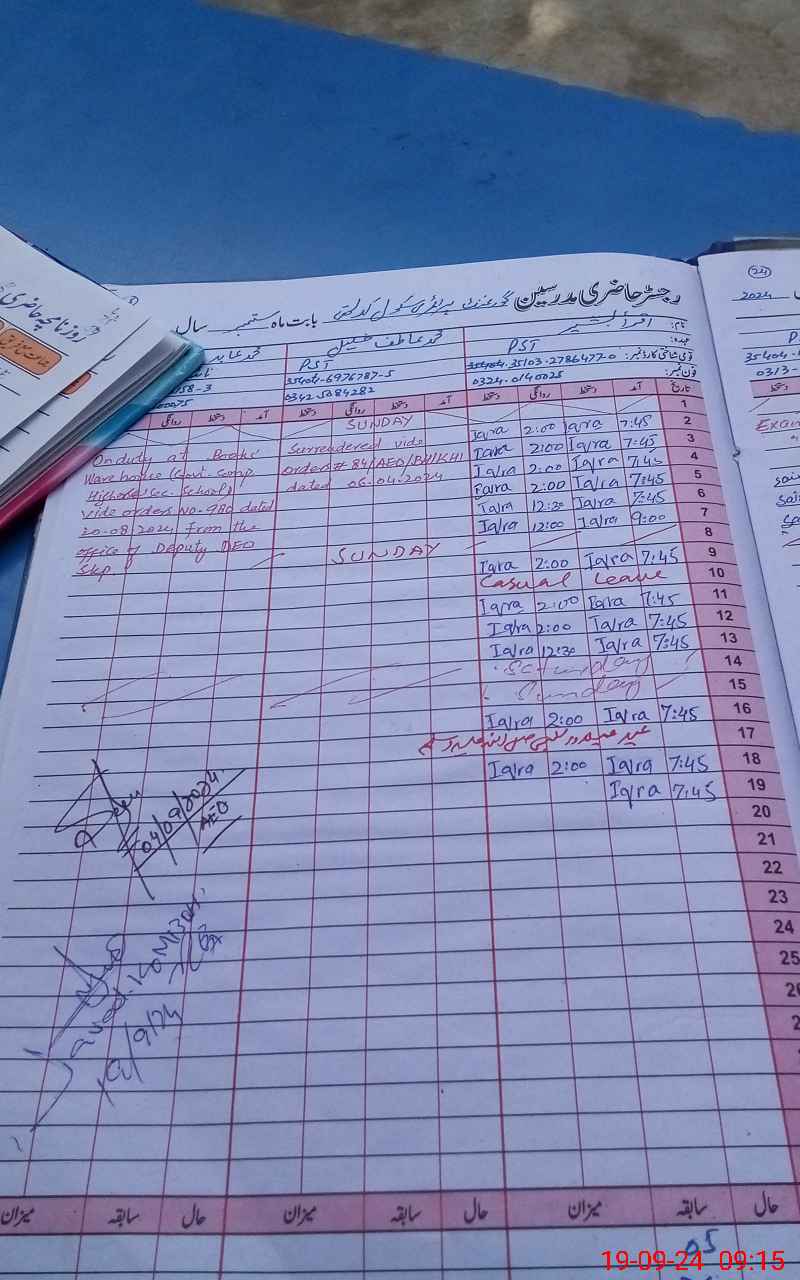 رجسٹر حاضری مدرسین
بابت ماہ ستمبر سال
(24)
2024
روزنامچہ حاضری
نام: اقرا بشیر
محمد عاطف
عہدہ: PST
PST
قومی شناختی کارڈ نمبر: 35404-35103-2786477-0
35404-6976787-5
58-3
35404-
فون نمبر: 0324-0140025
0342-5084282
00075
0313-
تاریخ آمد دستخط روانگی دستخط آمد دستخط روانگی دستخط آمد دستخط روانگی
1
SUNDAY
2 7:45 Iqra 2:00 Iqra
3 7:45 Iqra 2:00 Iqra
4 7:45 Iqra 2:00 Iqra
5 7:45 Iqra 2:00 Iqra
6 7:45 Iqra 12:30 Iqra
7 9:00 Iqra 12:00 Iqra
8
SUNDAY
9 7:45 Iqra 2:00 Iqra
10 Casual Leave
11 7:45 Iqra 2:00 Iqra
12 7:45 Iqra 2:00 Iqra
13 7:45 Iqra 12:30 Iqra
14
15 Sunday
16 7:45 Iqra 2:00 Iqra
17
18 7:45 Iqra 2:00 Iqra
19 7:45 Iqra
20
21
22
23
24
25
Surrendered vide
order # 84/AEO/BHIKHI
dated 06-04-2024
On duty at Books'
Ware house (Govt. Comp
High Sec. School)
vide orders No. 980 dated
20-08-2024 from the
office of Deputy DEO
Skp.
04/09/2024
AEO
/9/24
حال سابقہ میزان حال سابقہ میزان حال سابقہ میزان
05
19-09-24 09:15